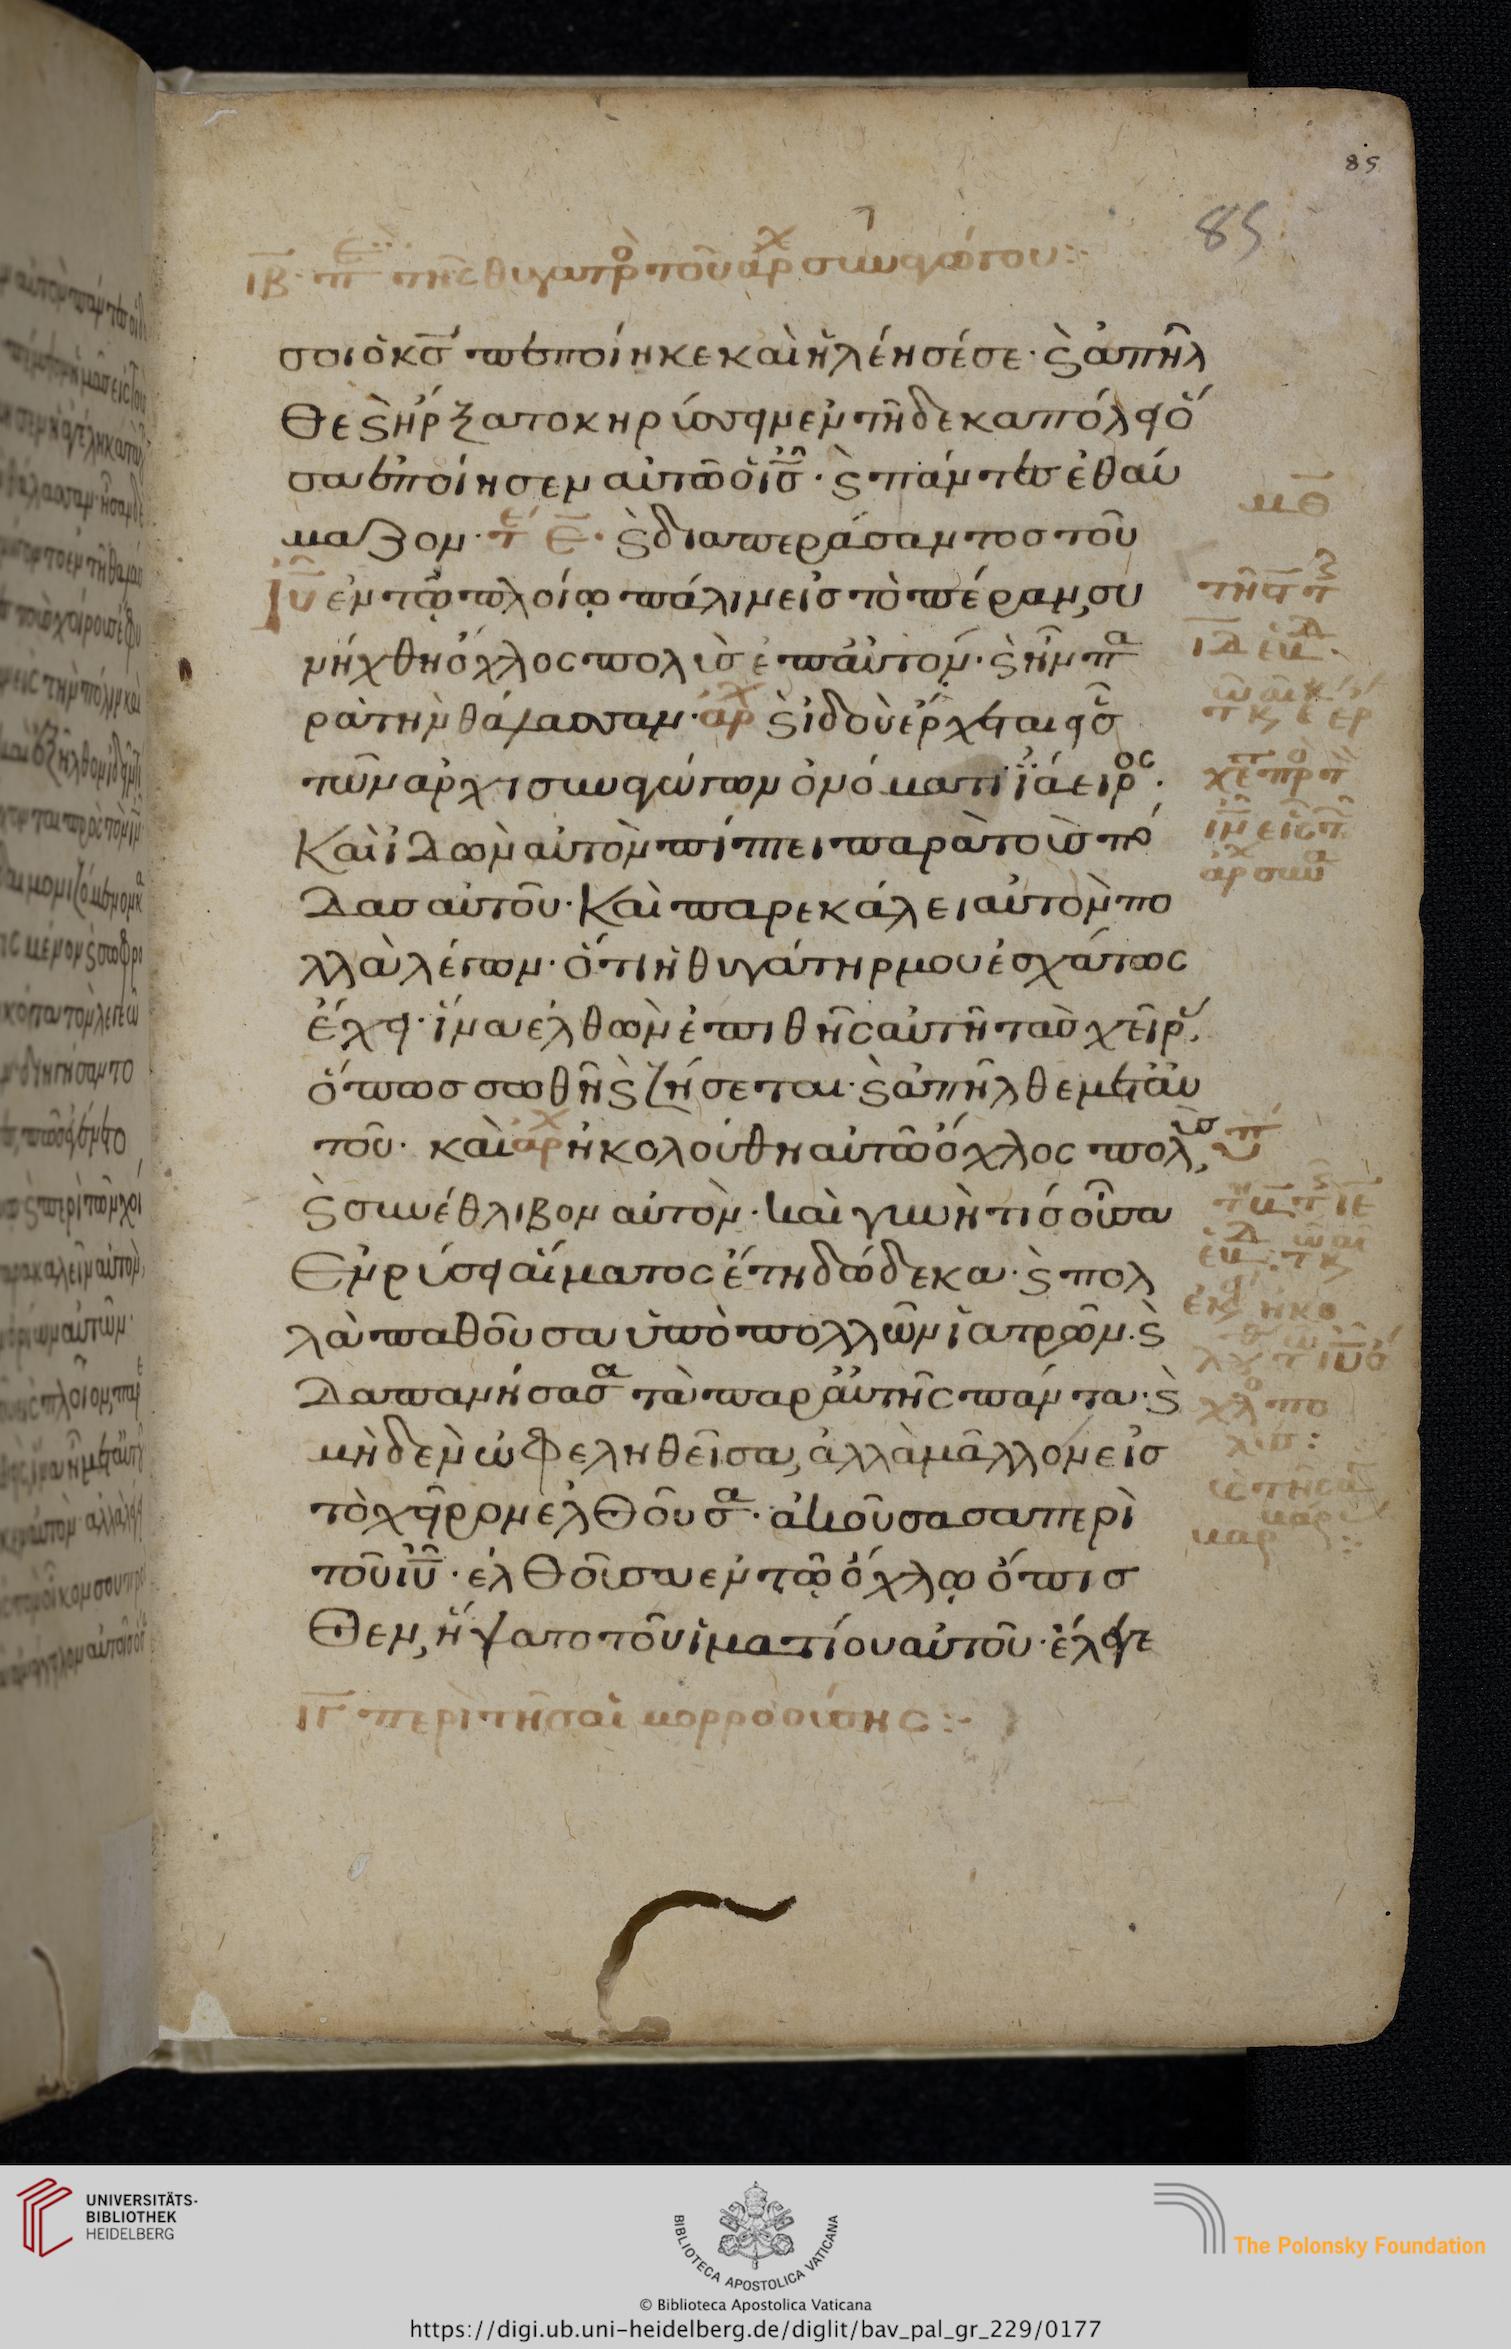 85
85
ιβ π τῆς θυγατρ τοῦ ἀρχ συναγώγου:
σοι ὁ κσ πεποίηκε καὶ ἠλέησέ σε· ϛ ἀπῆλ
θε ϛ ἤρξατο κηρύσσειν ἐν τῇ δεκαπόλει ὅ
σα ἐποίησεν αὐτῶ ὁ ισ· ϛ πάντες ἐθαύ
μαζον· τε ε· ϛ διαπεράσαντος τοῦ
ιυ ἐν τῷ πλοίῳ πάλιν εἰς τὸ πέραν, συ
νήχθη ὄχλος πολὺς ἐπ αὐτόν· ϛ ἦν πα
ρὰ τὴν θάλασσαν· ἀρχ ϛ ἰδοὺ ἔρχεται εἷς
τῶν ἀρχισυναγώγων ὀνόματι ϊάειρος·
Καὶ ἰδὼν αὐτὸν πίπτει παρὰ τοὺς πό
δας αὐτοῦ· Καὶ παρεκάλει αὐτὸν πο
λλὰ λέγων· ὅτι ἡ θυγάτηρ μου ἐσχάτως
ἔχει· ἵνα ἐλθὼν ἐπιθῆς αὐτῆ τὰς χεῖρ
ὅπως σωθῆ ϛ ζήσεται· ϛ ἀπῆλθε μετ αὐ
τοῦ· καὶ ἀρχ ἠκολούθη αὐτῶ ὄχλος πολὺς,
ϛ συνέθλιβον αὐτὸν· καὶ γυνὴ τίς οὖσα
Ἐν ρύσει αἵματος ἔτη δώδεκα· ϛ πολ
λὰ παθοῦσα ὑπὸ πολλῶν ἰατρῶν· ϛ
δαπανήσασα τὰ παρ αὐτῆς πάντα· ϛ
μηδὲν ὠφεληθεῖσα, ἀλλὰ μᾶλλον εἰς
τὸ χεῖρον ἐλθοῦσα· ἀκούσασα περὶ
τοῦ ιυ· ἐλθοῦσα ἐν τῷ ὄχλῳ ὄπισ
θεν, ἥψατο τοῦ ἱματίου αὐτοῦ· ἔλεγε
ιγ περὶ τῆς αἱμορροούσης:
μθ
ιδ
ἀρχ συν
ιε
ηκο
ιυ ὄ
χλο πο
λύς:
UNIVERSITÄTS-
BIBLIOTHEK
HEIDELBERG
BIBLIOTECA APOSTOLICA VATICANA
© Biblioteca Apostolica Vaticana
The Polonsky Foundation
https://digi.ub.uni-heidelberg.de/diglit/bav_pal_gr_229/0177